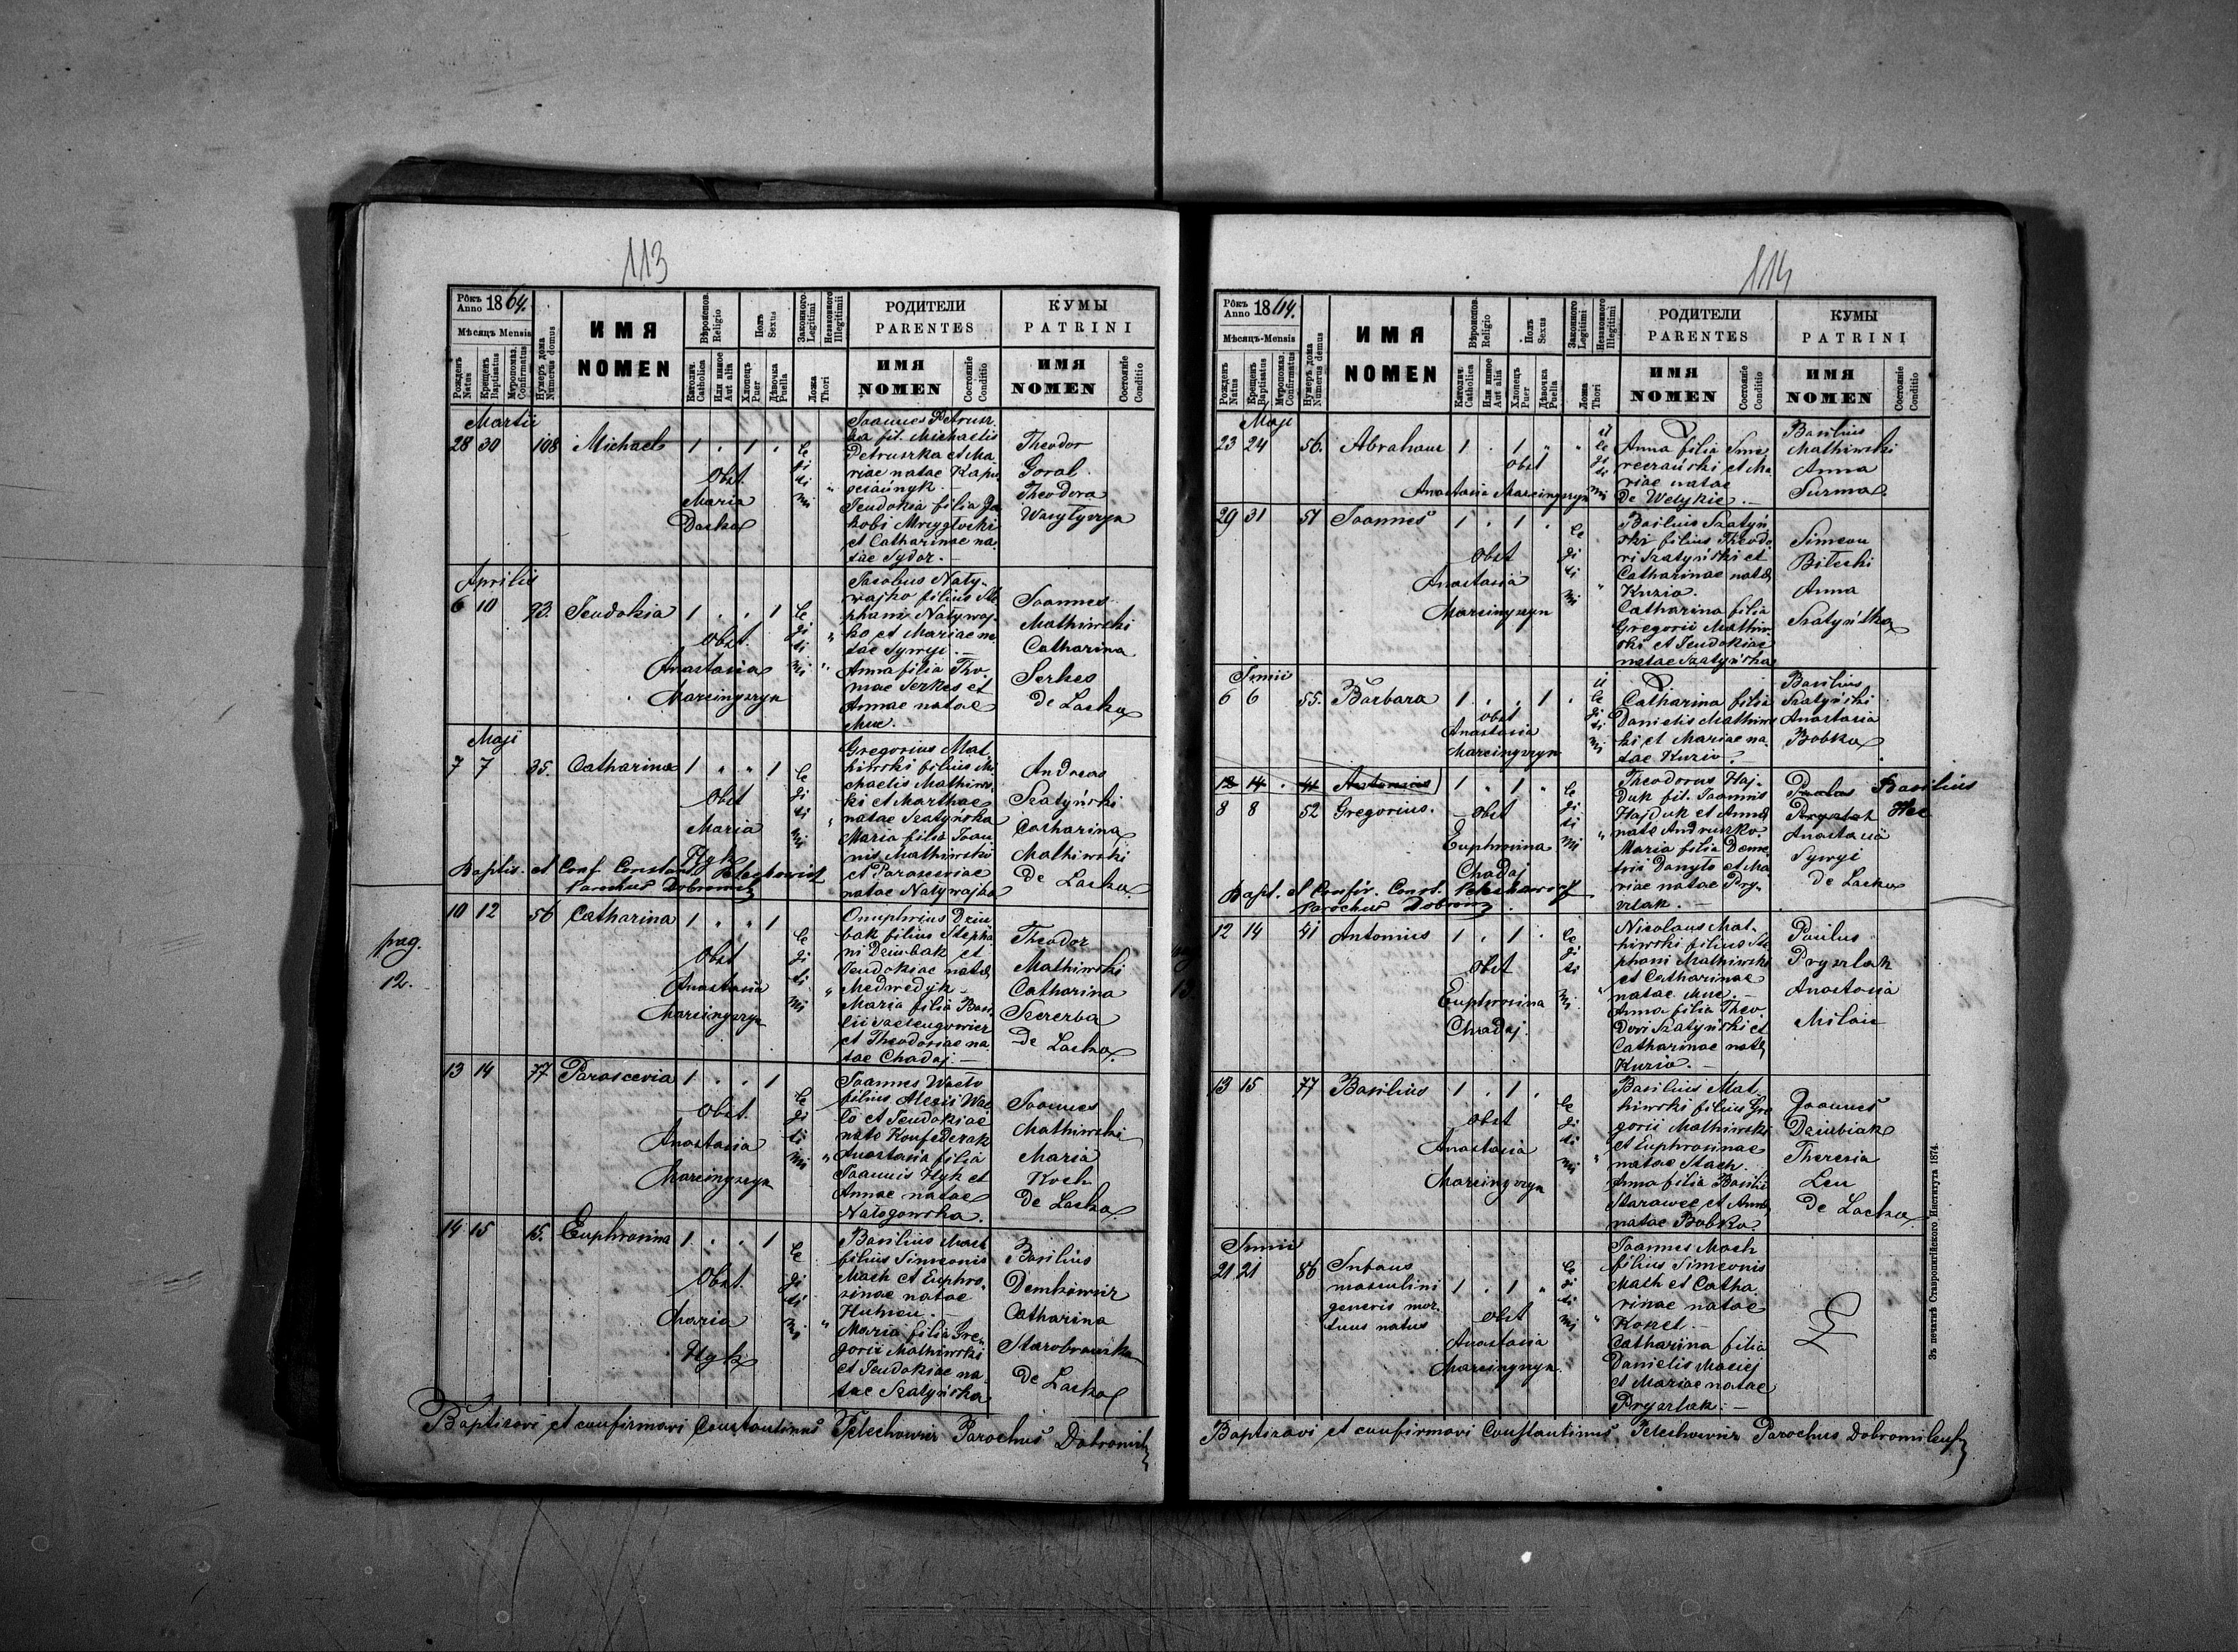 113
Рôкъ Anno 1864.
Мѣсяцъ Mensis
Рожденъ Natus
Крещенъ Baptisatus
Муропомаз. Confirmatus
Нумеръ дома Numerus domus
ИМЯ
NOMEN
Вѣроиспов. Religio
Католич. Catholica
Или инное Aut alia
Полъ Sexus
Хлопецъ Puer
Дѣвочка Puella
Законного Legitimi
Незаконного Illegitimii
Ложа Thori
РОДИТЕЛИ
PARENTES
ИМЯ
NOMEN
Состояніе Conditio
КУМЫ
PATRINI
ИМЯ
NOMEN
Состояніе Conditio
Martii
28 30 108 Michael 1 . 1 . legitimi
Obst.
Maria
Daska
Joannes Petrusz-
ka fil. Michaelis
Petruszka et Ma-
riae natae Kapu-
Teudokia filia Ja-
kobi Mrzygłocki
et Catharinae na-
tae Sydor. —
Theodor
Goral.
Theodora
Wasylyszyn
Aprilis
6 10 93. Teudokia 1 . . 1 legitimi
Obst.
Anastasia
Marcinyszyn
Jacobus Naty-
wajko filius Ste-
phani Natywaj-
ko et Mariae na-
tae Sywyi. —
Anna filia Tho-
mae Serkes et
Annae natae
Muc. —
Joannes
Mathiwski
Catharina
Serkes
de Lacko
Maji
7 7 35. Catharina 1 " " 1 legitimi
Obst
Maria
Hyk
Gregorius Mat-
hiwski filius Mi-
chaelis Mathiws-
ki et Marthae
natae Szatyńska
Maria filia Joan-
nis Mathiwski
et Parasceviae
natae Natywajko
Andreas
Szatyński
Catharina
Mathiwski
de Lacko
Baptis. et Conf. Constant. Petechowicz
Parochus Dobromil
10 12 56 Catharina 1 " " 1 legitimi
Obst
Anastasia
Marcinyszyn
Onuphrius Dziu-
bak filius Stepha-
ni Dziubak et
Teudokiae natae
Medwedyk —
Maria filia Basi-
lii
et Theodosiae na-
tae Chadaj. —
Theodor
Mathiwski
Catharina
Szczerba
de Lacko
pag.
12.
13 14 77 Parascevia 1 . . 1 legitimi
Obst.
Anastasia
Marcinyszyn
Joannes
filius Alexii
et Teudokiae
nato Konfederak
Anastasia filia
Joannis Hyk et
Annae natae
Nałogowska.
Joannes
Mathiwski
Maria
Koch
de Lacko
14 15 15. Euphrosina 1 . . 1 legitimi
Obst.
Maria
Hyk
Basilius Mach
filius Simeonis
Mach et Euphro-
sinae natae
Human. —
Maria filia Gre-
gorii Mathiwski
et Teudokiae na-
tae Szatyńska
Basilius
Demkowicz
Catharina
de Lacko
Baptisavi et confirmavi Constantinus Petechowicz Parochus Dobromil
114
Рôкъ Anno 1864.
Мѣсяцъ-Mensis
Рожденъ Natus
Крещенъ Baptisatus
Муропомаз. Confirmatus
Нумеръ дома Numerus domus
ИМЯ
NOMEN
Вѣроиспов. Religio
Католич. Catholica
Или инное Aut alia
Полъ Sexus
Хлопецъ Puer
Дѣвочка Puella
Законного Legitimi
Незаконного Illegitimi
Ложа Thori
РОДИТЕЛИ
PARENTES
ИМЯ
NOMEN
Состояніе Conditio
КУМЫ
PATRINI
ИМЯ
NOMEN
Состояніе Conditio
Maji
23 24 56. Abraham 1 . 1 " " illegitimi
Obst
Anastasia Marcinyszyn
Anna filia
et Ma-
riae natae
de Welykie. —
Basilius
Mathiwski
Anna
Surma
29 31 51 Joannes 1 . 1 . legitimi
Obst
Anastasia
Marcinyszyn
Basilius Szatyń-
ski filius Theodo-
ri Szatyński et
Catharinae natae
Kuzio.
Catharina filia
Gregorii Mathiw-
ski et Teudokiae
natae Szatyńska
Simeon
Biteski
Anna
Szatyńska
Junii
6 6 55. Barbara 1 . . 1 . illegitimi
Obst
Anastasia
Marcinyszyn
Catharina filia
Danielis Mathiws-
ki et Mariae na-
tae Kuzio. —
Basilius
Szatyński
Anastasia
Bobko
12 14 . 41 Antonius 1 " 1 " legitimi
8 8 52 Gregorius. Obst
Euphrosina
Chadaj
Theodorus Haj-
duk fil. Joannis
Hajduk et Annae
nate Andruszko.
Maria filia Deme-
trii Danyło et Ma-
riae natae Pry-
szlak. —
Paulus Basilius
Pryszlak Hec
Anastasia
Sywyi
de Lacko
Bapt. et Confir. Const. Petechowicz
Parochus Dobrom
12 14 41 Antonius 1 . 1 . legitimi
Obst
Euphrosina
Chadaj.
Nicolaus Mat-
hiwski filius Ste-
phani Mathiwski
et Catharinae
natae Muc. —
Anna filia Theo-
dori Szatyński et
Catharinae natae
Kuzio. —
Paulus
Pryszlak
Anastasia
Milan
13 15 77 Basilius 1 . 1 . legitimi
Obst
Anastasia
Marcinyszyn
Basilius Mat-
hiwski filius Gre-
gorii Mathiwski
et Euphrosinae
natae Stach.
Anna filia Basilii
Starawec et Annae
natae Bobko.
Joannes
Dziubiak
Theresia
Len
de Lacko
Junii
21 21 86 Infans
masculini
generis mor-
tuus natus
1 . 1 " legitimi
Obst
Anastasia
Marcinyszyn.
Joannes Mach
filius Simeonis
Mach et Catha-
rinae natae
Koszet. —
Catharina filia
Danielis Maciej
et Mariae natae
Pryszlak. —
Baptisavi et confirmavi Constantinus Petechowicz Parochus Dobromilens
Зъ печатнѣ Ставропигійского Института 1874.